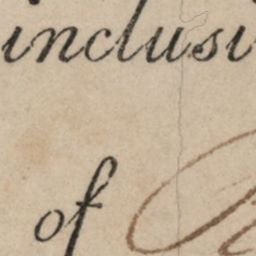 inclusi
of